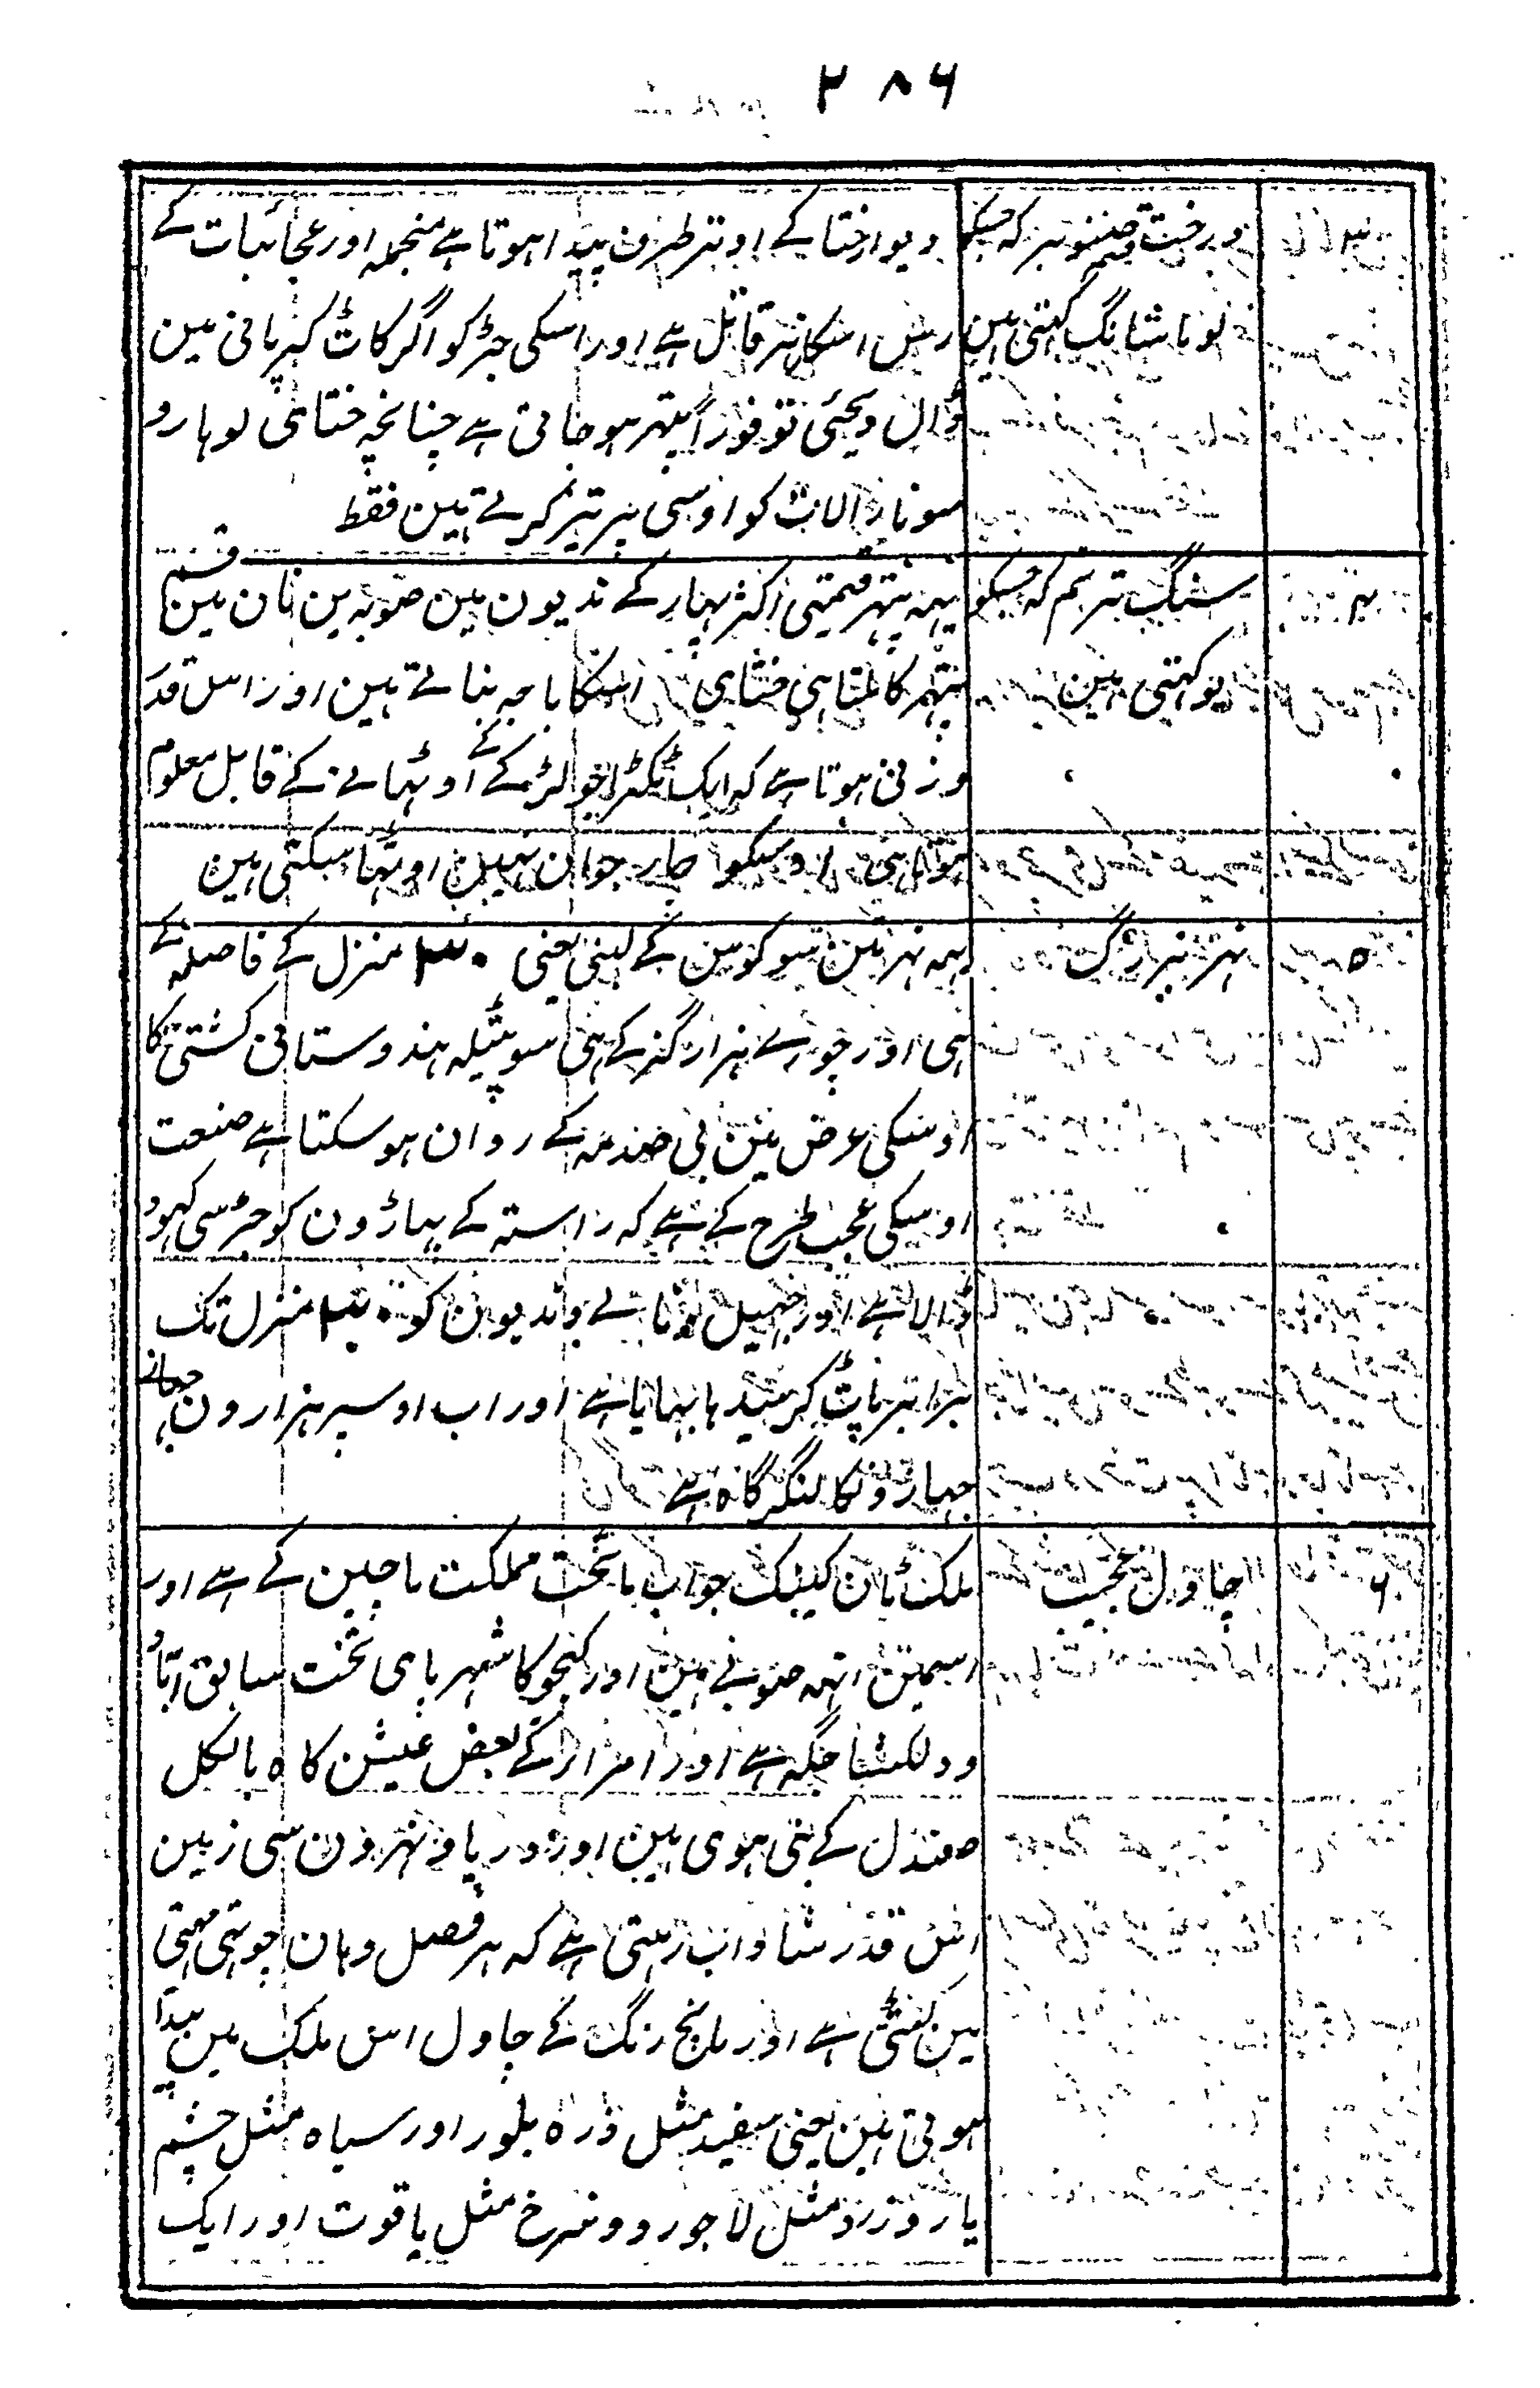 ۲۸۶
۳ درخت صنوبر کہ جسکو دیوار ختا کے اوتر طرف پیدا ہوتا ہے منجملہ اور عجائبات کے
نوباشانگ کہتی ہین رس اسکا زہر قاتل ہے اور اسکی جڑ کو اگر کاٹ کر پانی مین
ڈال دیجئی تو فوراً پتہر ہو جاتی ہے چنانچہ ختائی لوہار و
سونار الات کو اوسی پر تیز کرتے ہین فقط
۴ سنگ تریم کہ جسکو یہہ پتہر قیمتی اکثر پہاڑ کے ندیون مین صوبہ ین نان مین قسم
یو کہتی ہین پتہر کا ملتا ہی ختای اسکا باجہ بناتے ہین اور اس قدر
وزنی ہوتا ہے کہ ایک ٹکڑا جو لڑکے کے اوٹہانے کے قابل معلوم
ہوتا ہی اوسکو چار جوان نہین اوٹہا سکتی ہین
۵ نہر بزرگ یہہ نہر تین سو کوس کے لنبی یعنی ۳۰ منزل کے فاصلہ کے
ہی اور چوڑے ہزار گز کے ہی سو پٹیلہ ہندوستانی کشتی کا
اوسکی عرض مین بی صدمہ کے روان ہو سکتا ہے صنعت
اوسکی عجب طرح کے ہے کہ راستہ کے پہاڑون کو جڑ سی کہود
ڈالا ہے اور جہیل و تالاب و ندیون کو ۳۰ منزل تک
برابر پاٹ کر سیدہا بنایا ہے اور اب اوسپر ہزارون جہاز
جہازونکا لنگر گاہ ہے
۶ چاول عجیب ملک ٹان کینک جو اب ماتحت مملکت ماچین کے ہے اور
اسمین اٹہہ صوبے ہین اور کیچو کا شہر پای تخت سابق اباد
و دلکشا جگہ ہے اور امرا کے بعض عیش گاہ بالکل
صندل کے بنی ہوی ہین اور دریا و نہرون سی زمین
اس قدر شاداب رہتی ہے کہ ہر فصل وہان چوتہی مہینی
مین کٹتی ہے اور پانچ رنگ کے چاول اس ملک مین پیدا
ہوتی ہین یعنی سفید مثل ذرہ بلور اور سیاہ مثل چشم
یار و زرد مثل لاجورد و سرخ مثل یاقوت اور ایک